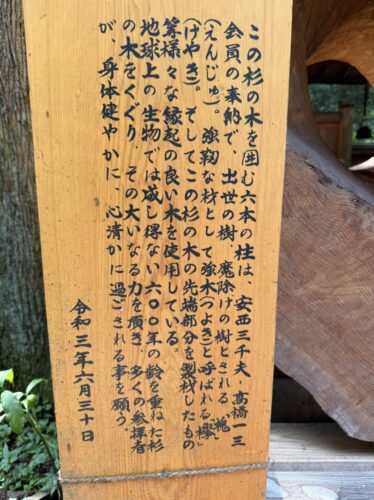 この杉の木を囲む六本の柱は、安西三千夫・高橋一三
会員の奉納で、出世の樹、魔除けの樹とされる「槐」
(えんじゅ)。強靭な材として強木(つよき)と呼ばれる「欅」
(けやき)。そしてこの杉の木の先端部分を製材したもの
等様々な縁起の良い木を使用している。
地球上の生物では成し得ない六〇〇年の齢を重ねた杉
の木をくぐり、その大いなる力を頂き、多くの参拝者
が、身体健やかに、心清かに過ごされる事を願う。
令和三年六月三十日